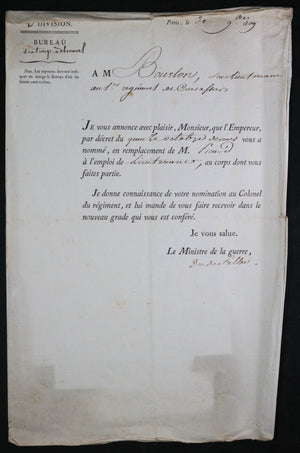 DIVISION.
Paris, le 30 9bre 1809
BUREAU
Nota. Les réponses doivent indi-
quer en marge le Bureau d'où les
lettres sont sorties.
A M Bourlon, Souslieutenant
au 1er régiment de Cuirassiers
Je vous annonce avec plaisir, Monsieur, que l'Empereur,
par décret du vous a
nommé, en remplacement de M. Picard
à l'emploi de Lieutenant, au corps dont vous
faites partie.
Je donne connaissance de votre nomination au Colonel
du régiment, et lui mande de vous faire recevoir dans le
nouveau grade qui vous est conféré.
Je vous salue.
Le Ministre de la guerre,